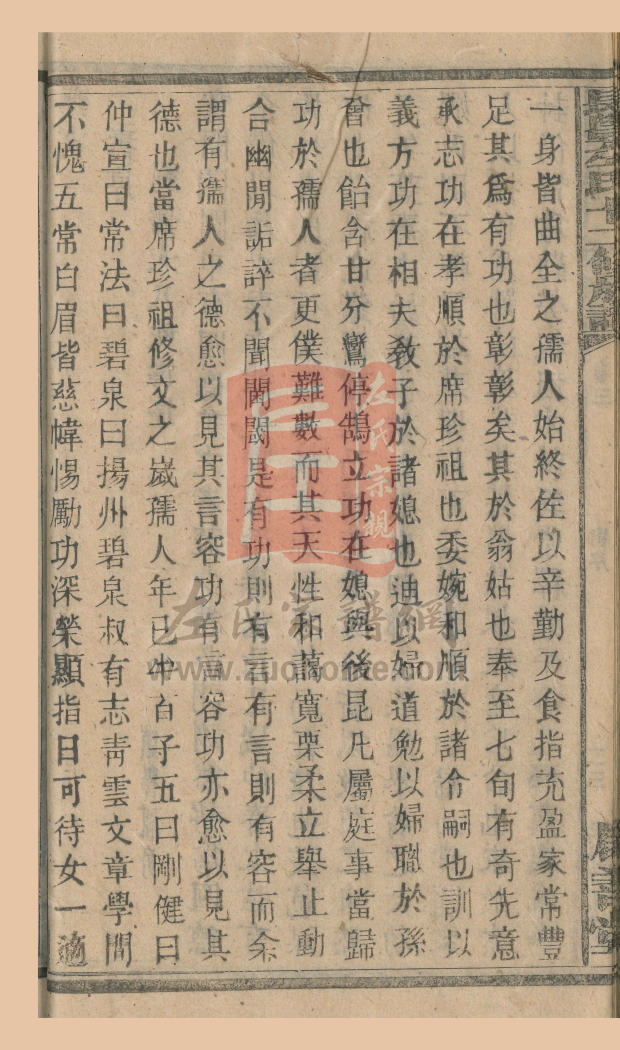 一身皆曲全之孺人始終佐以辛勤及食指充盈家常豐
足其為有功也彰彰矣其於翁姑也奉至七旬有奇先意
承志功在孝順於席珍祖也委婉和順於諸令嗣也訓以
義方功在相夫教子於諸媳也迪以婦道勉以婦職於孫
曾也飴含甘分鸞停鵠立功在媳與後昆凡屬庭事當歸
功於孺人者更僕難數而其天性和藹寬栗柔立舉止動
合幽閒詬誶不聞閫閾是有功則有言有言則有容而余
謂有孺人之德愈以見其言容功有言容功亦愈以見其
德也當席珍祖修文之歲孺人年已半百子五曰剛健曰
仲宣曰常法曰碧泉曰揚州碧泉叔有志靑雲文章學問
不愧五常白眉皆慈幃惕勵功深榮顯指日可待女一適
左氏宗親
左氏宗譜網